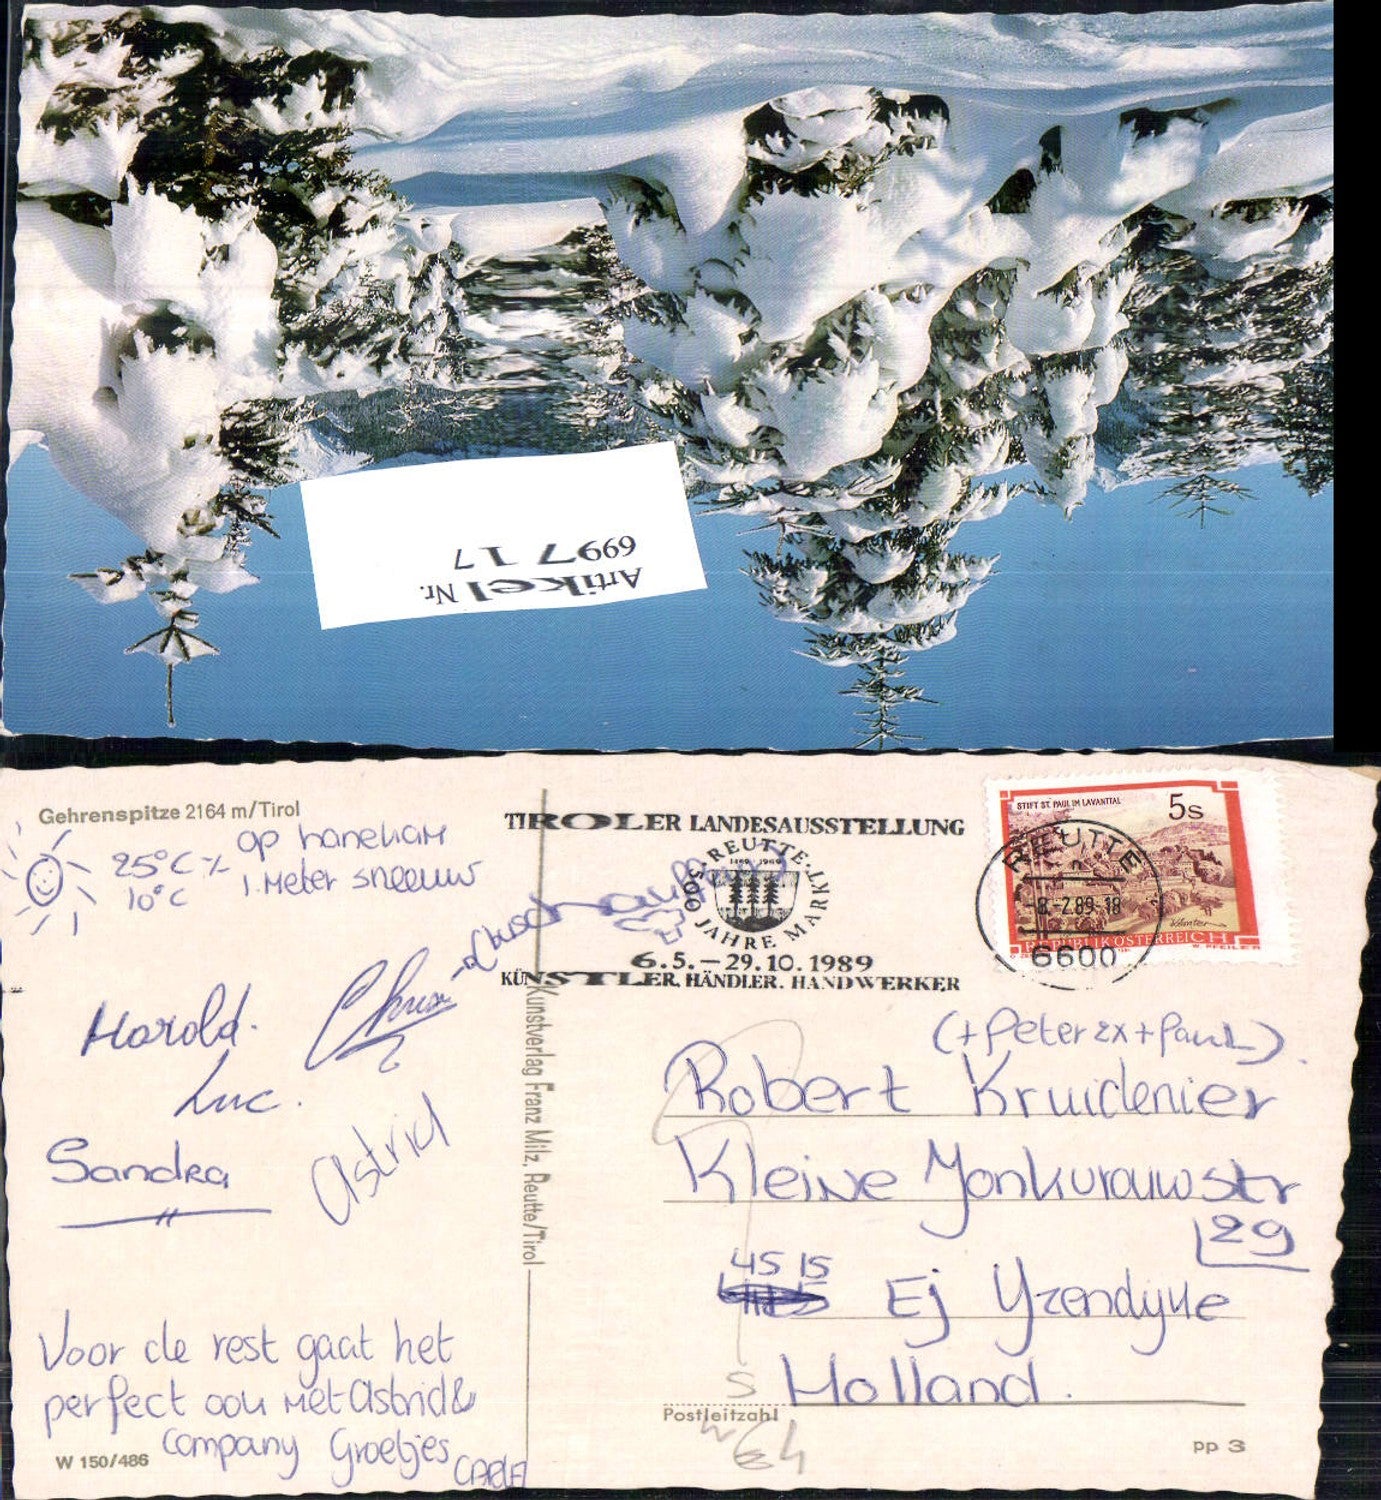 Artikel Nr.
6997 17
Gehrenspitze 2164 m/Tirol
25°C
10°C
op
1 Meter sneeuw
Harold.
Luc.
Sandra
Astrid
Voor de rest gaat het
perfect ook met Astrid &
Company Groetjes
W 150/486
Kunstverlag Franz Milz, Reutte/Tirol
TIROLER LANDESAUSSTELLUNG
REUTTE
1489 1989
500 JAHRE MARKT
6.5.–29.10.1989
KÜNSTLER, HÄNDLER, HANDWERKER
STIFT ST. PAUL IM LAVANTTAL
5s
Kärnten
REPUBLIK ÖSTERREICH
W. PFEILER
REUTTE
-8.-2.89-18
6600
(+Peter 2x + Paul)
Robert Kruidenier
Kleine Jonkvrouwstr
29
4515 EJ Yzendijke
Holland.
Postleitzahl
pp 3